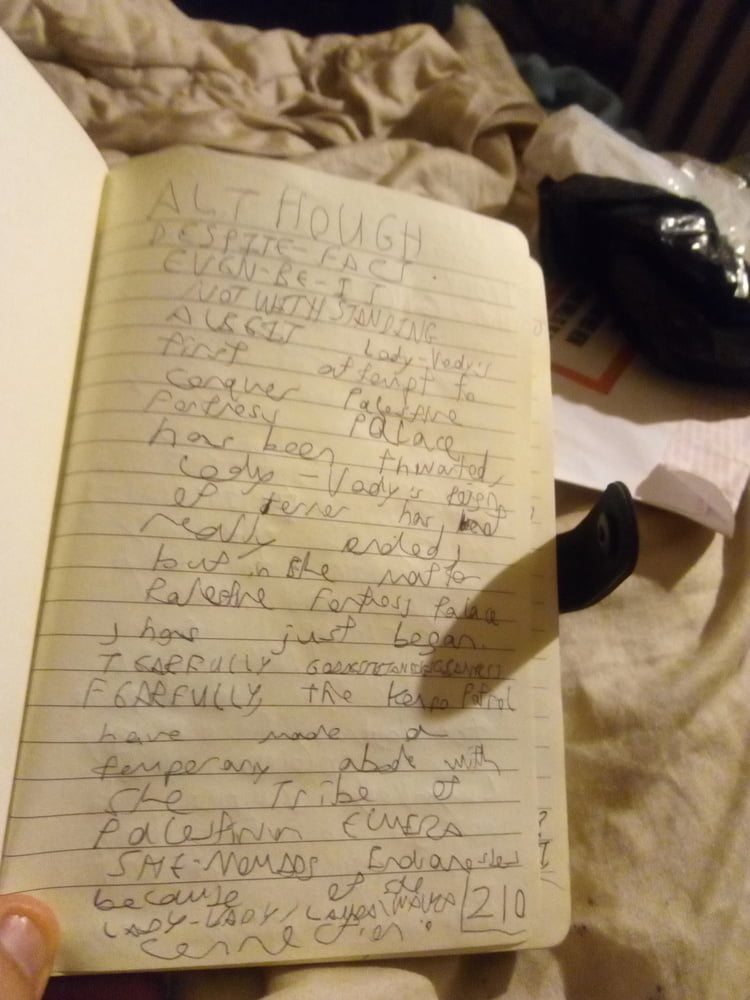 ALTHOUGH
DESPITE-FACT.
EVEN-BE-IT
NOT WITH STANDING
ALBEIT Lady-Vady's
first attempt to
Conquer Palestine
Fortress PALACE
has been thwarted,
Lady-Vady's reign
of terror has not
really ended,
but in the matter
Palestine Fortress Palace
just began.
FEARFULLY, the Patrol
have made a
temporary abode with
the Tribe of
Palestinian
SHE-NOMADS
because of the
LADY-VADY/
connection.
210